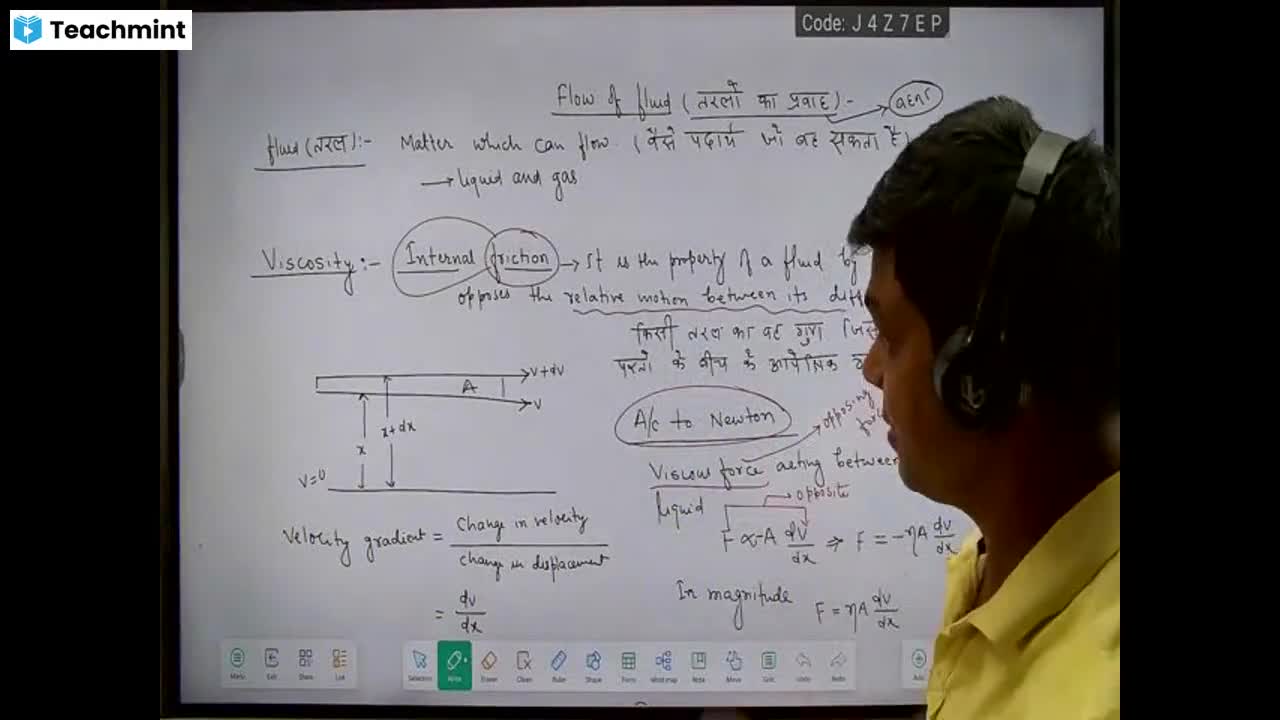 Teachmint
Code: J 4 Z 7 E P
Flow of fluid (तरलों का प्रवाह) :-
fluid (तरल) :- Matter which can flow. (वैसे पदार्थ जो बह सकता है)
→ liquid and gas
Viscosity :- Internal friction → It is the property of a fluid by
opposes the relative motion between its
किसी तरल का वह गुण
परतों के बीच के आपेक्षिक
V+dV
A
V
x+dx
x
V=0
A/c to Newton
opposing
force
Viscous force acting between
liquid
opposite
F ∝ -A dV/dx ⇒ F = -ηA dV/dx
Velocity gradient = Change in velocity / change in displacement
= dV/dx
In magnitude F = ηA dV/dx
Menu Exit Share List Selection Write Eraser Clean Ruler Shape Form Mind map Note Move Grid Undo Redo Add